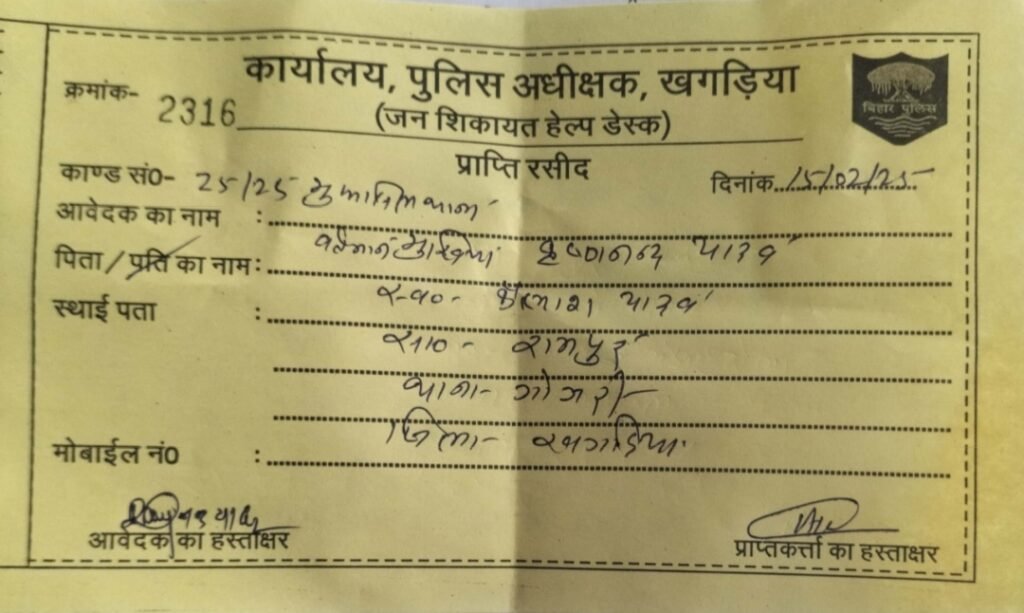 कार्यालय, पुलिस अधीक्षक, खगड़िया
क्रमांक- 2316
(जन शिकायत हेल्प डेस्क)
बिहार पुलिस
प्राप्ति रसीद
काण्ड सं0- 25/25
दिनांक 15/02/25
आवेदक का नाम :
वर्तमान मुखिया कृष्णानन्द यादव
पिता / पति का नाम :
स्व० - कैलाश यादव
स्थाई पता :
सा० - रामपुर
थाना - गोगरी
जिला - खगड़िया
मोबाईल नं0 :
आवेदक का हस्ताक्षर
प्राप्तकर्त्ता का हस्ताक्षर